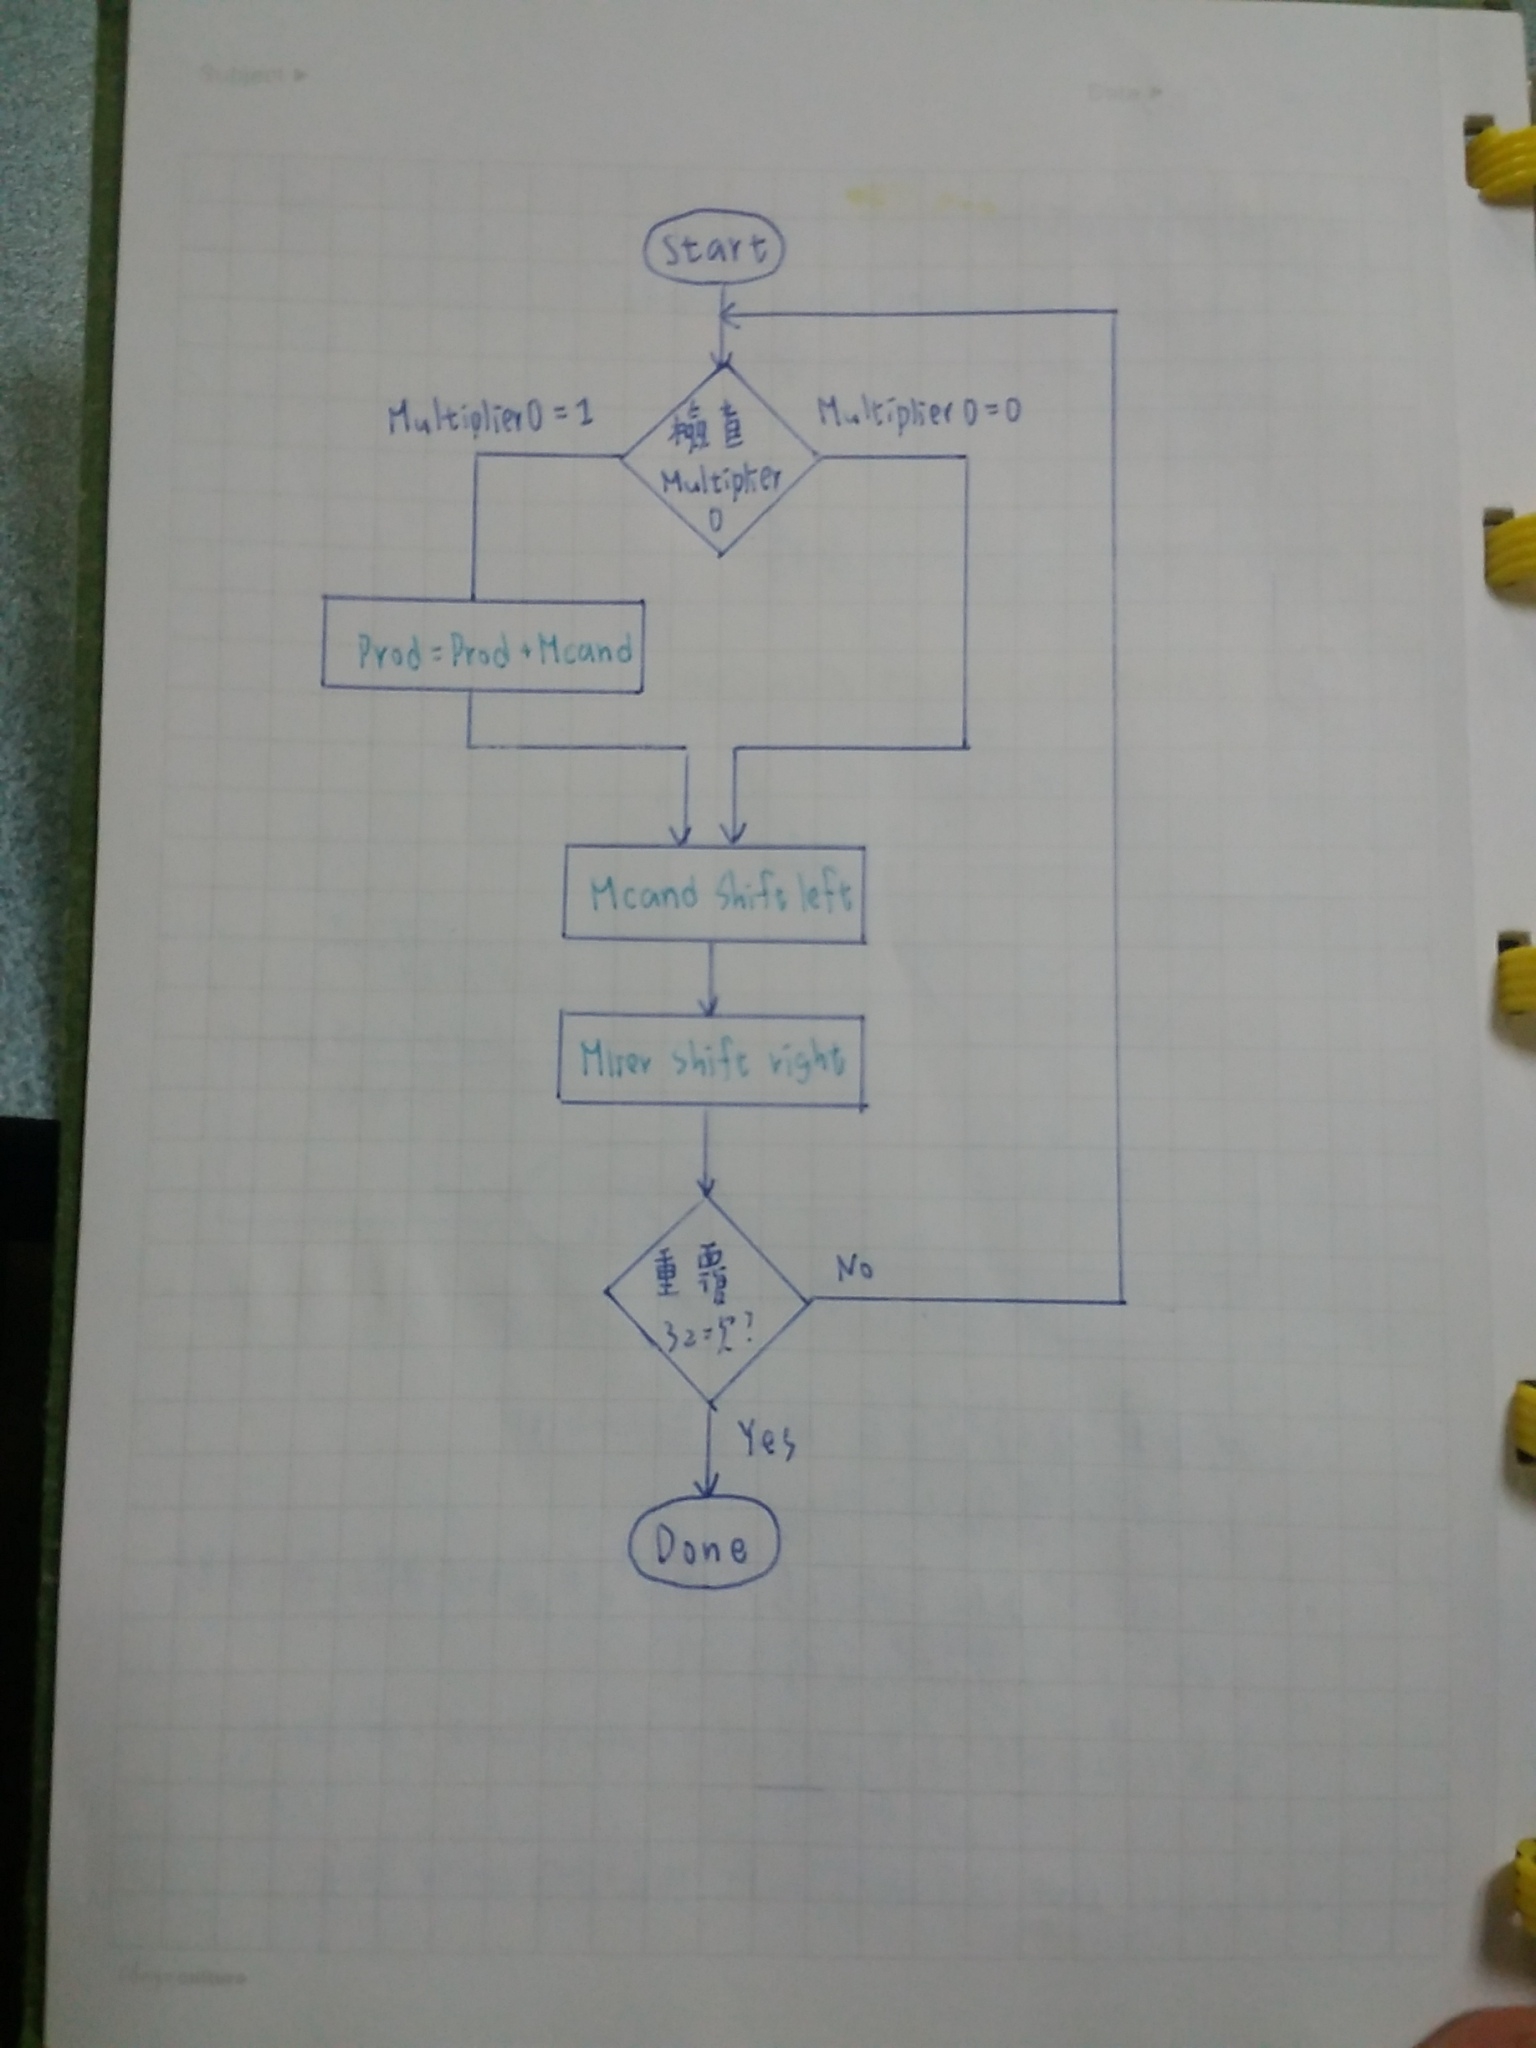 Subject ▸
Date ▸
Start
Multiplier0 = 1
Multiplier0 = 0
檢查
Multiplier
0
Prod = Prod + Mcand
Mcand Shift left
Mlier shift right
重覆
No
Yes
Done